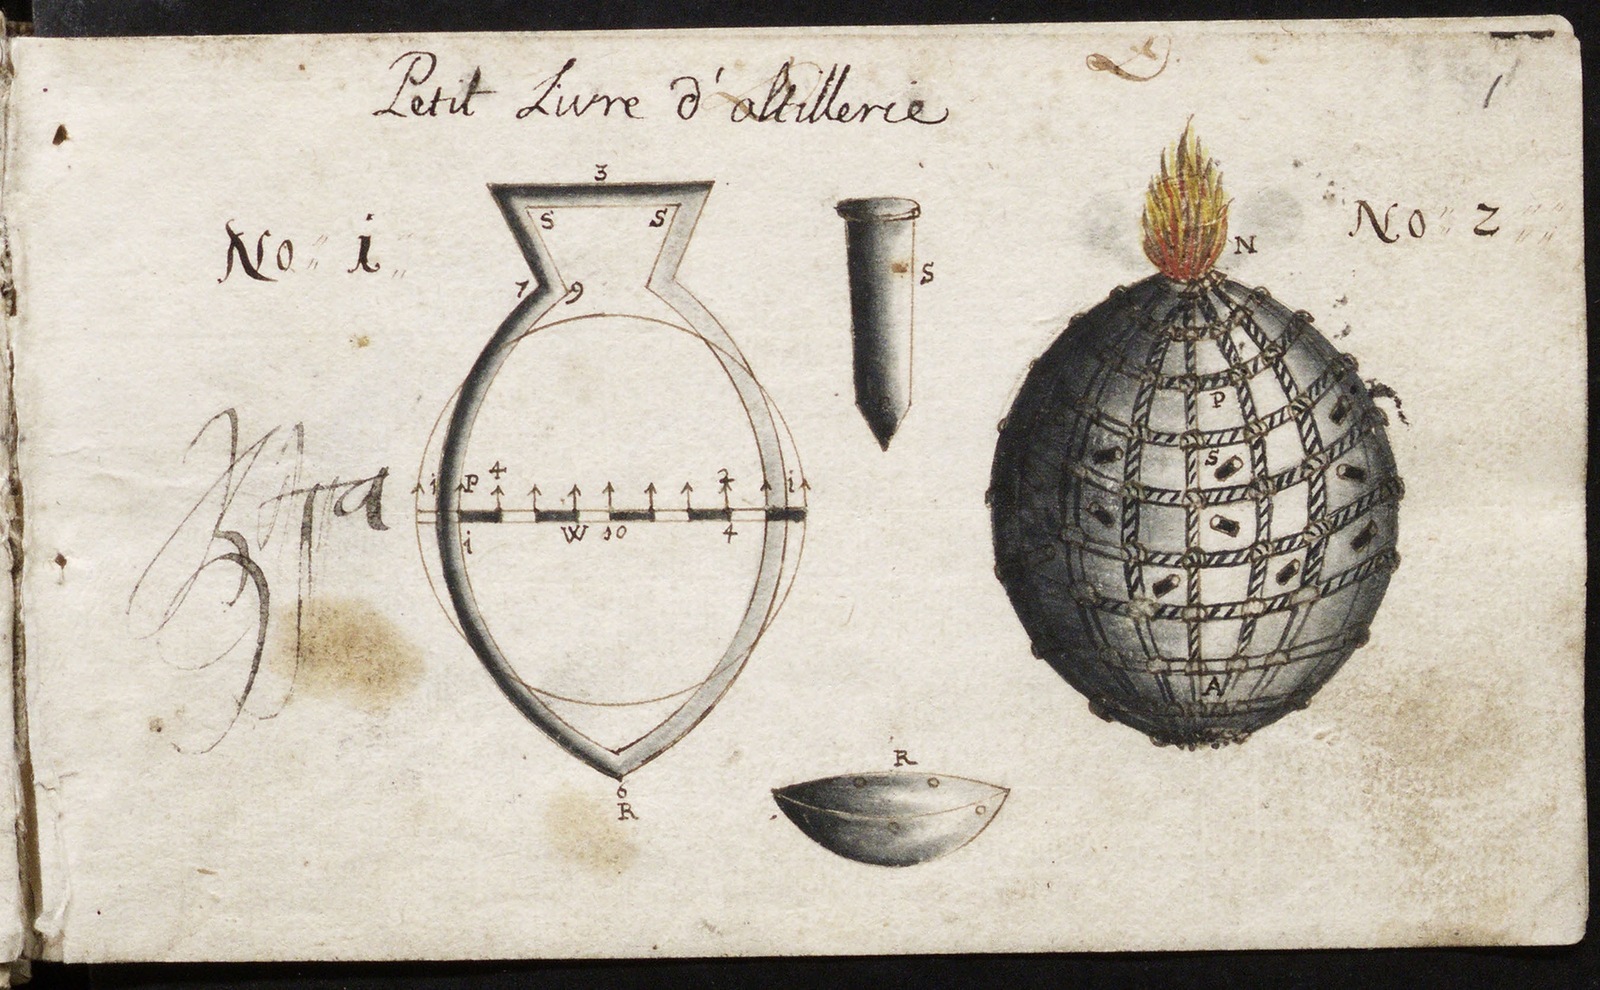 Petit Livre d'altillerie
1
No i
No 2
3
S S
S
N
7 9
P
i P 4 2 i
S
i W 10 4
A
R
6
R